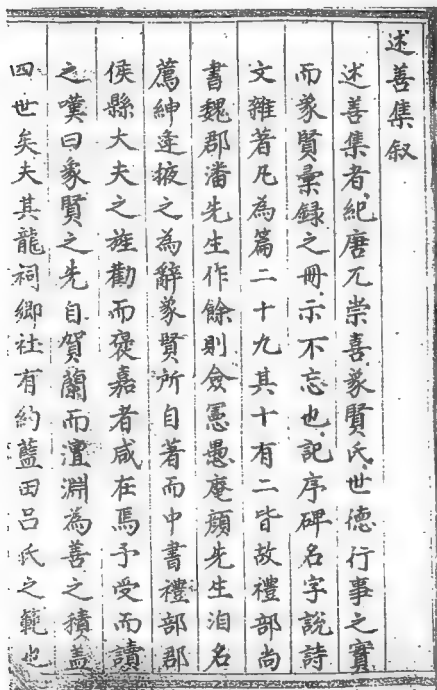 述善集叙
述善集者紀唐兀崇喜象賢氏世德行事之實
而象賢彙録之冊示不忘也記序碑名字說詩
文雜著凡為篇二十九其十有二皆故禮部尚
書魏郡潘先生作餘則僉憲愚庵顏先生洎名
薦紳逢掖之為辭象賢所自著而中書禮部郡
侯縣大夫之旌勸而褒嘉者咸在焉予受而讀
之嘆曰象賢之先自賀蘭而澶淵為善之積蓋
四世矣夫其龍祠鄉社有約藍田吕氏之範也